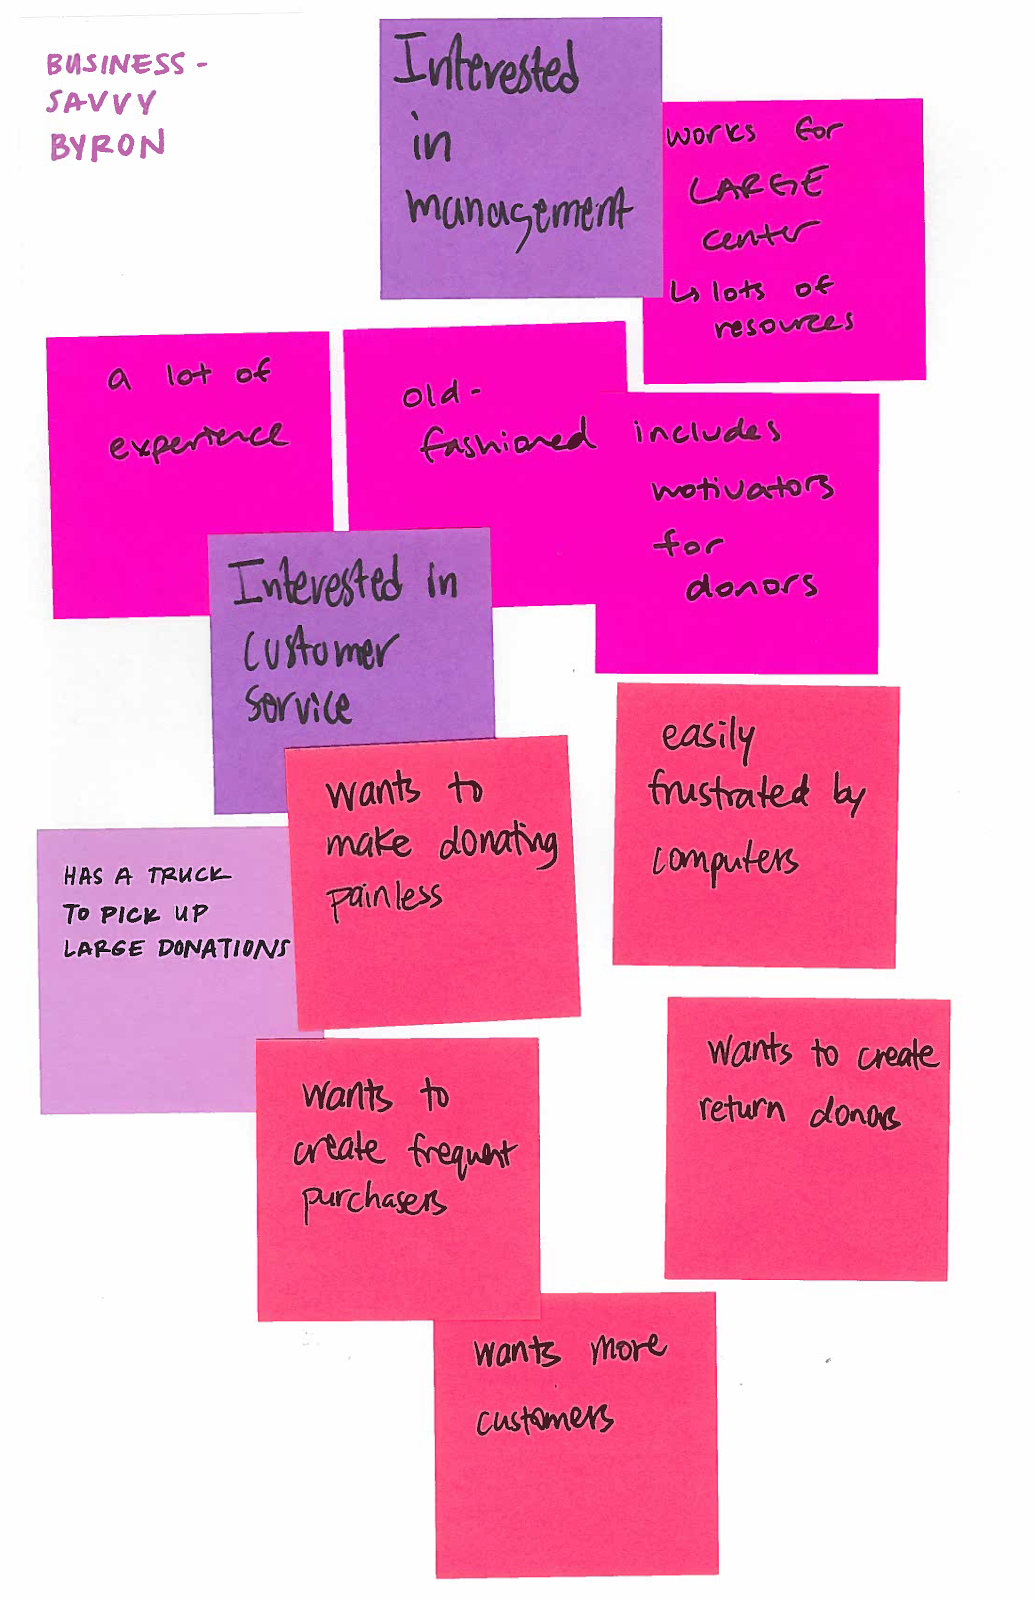 BUSINESS-
SAVVY
BYRON
Interested
in
management
works for
LARGE
center
↳ lots of
resources
a lot of
experience
old-
fashioned
includes
motivators
for
donors
Interested in
customer
service
wants to
make donating
painless
easily
frustrated by
computers
HAS A TRUCK
TO PICK UP
LARGE DONATIONS
wants to
create frequent
purchasers
wants to create
return donors
wants more
customers